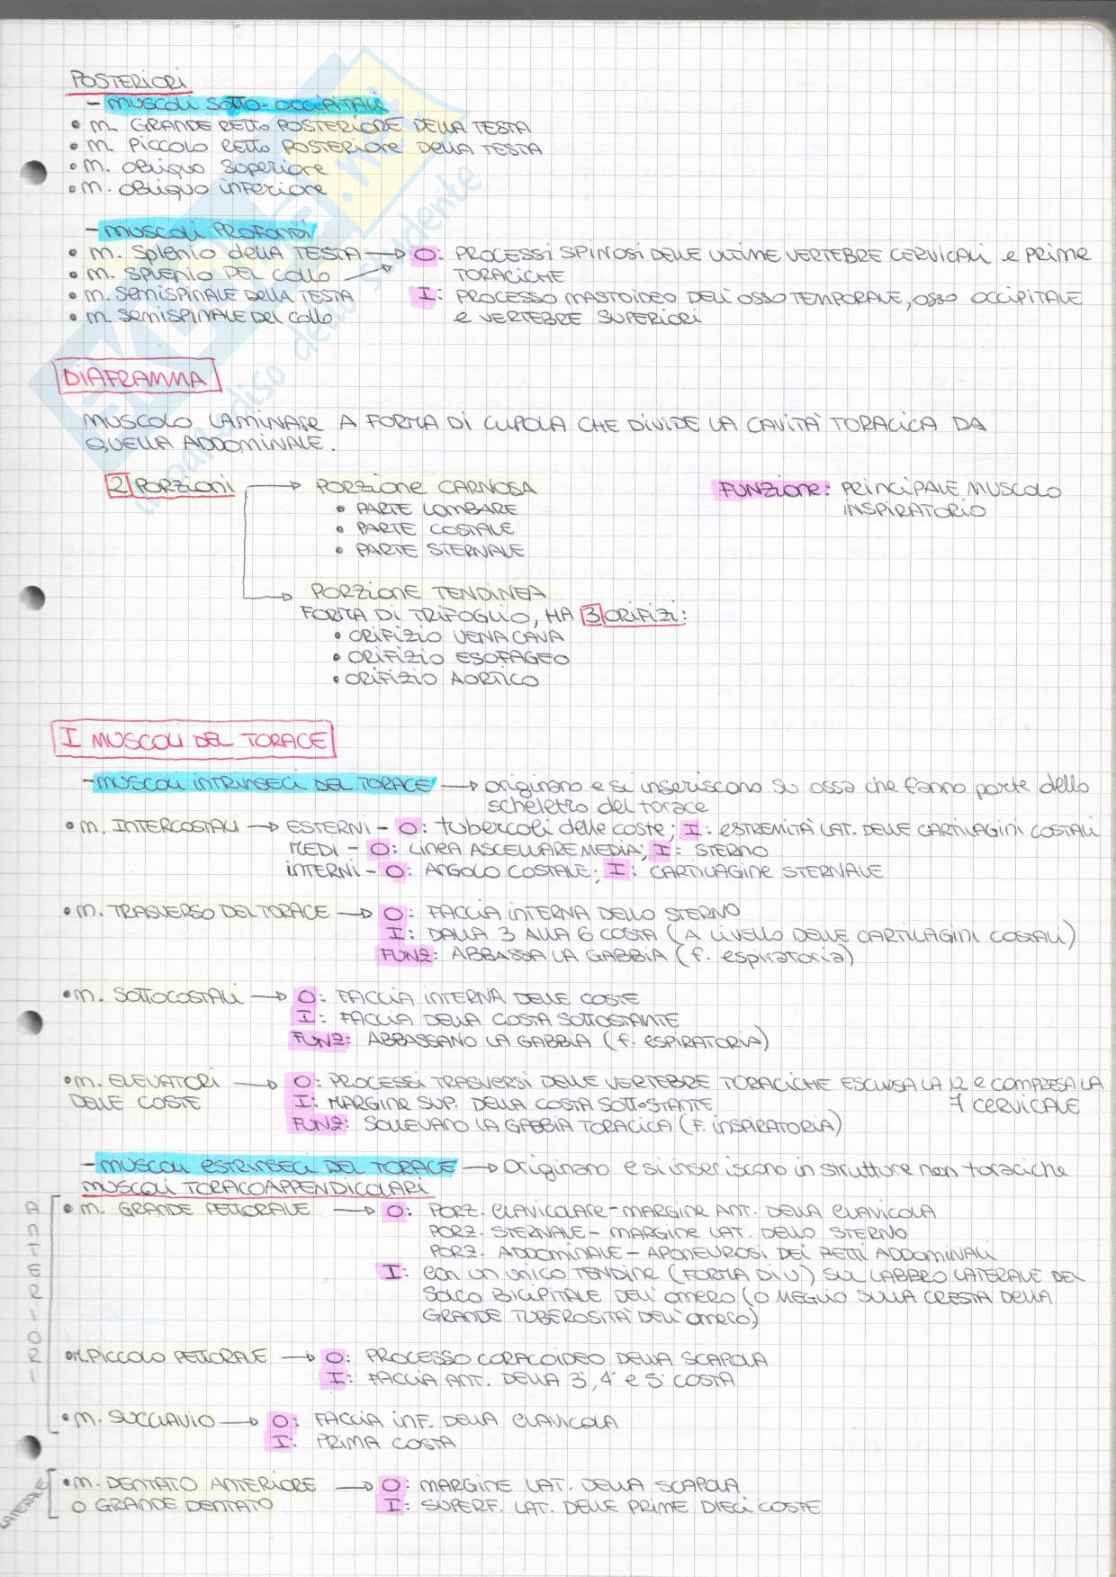 POSTERIORI
- MUSCOLI SOTTO-OCCIPITALI
• m. GRANDE RETTO POSTERIORE DELLA TESTA
• m. PICCOLO RETTO POSTERIORE DELLA TESTA
• m. OBLIQUO SUPERIORE
• m. OBLIQUO INFERIORE
- MUSCOLI PROFONDI
• m. SPLENIO DELLA TESTA → O: PROCESSI SPINOSI DELLE ULTIME VERTEBRE CERVICALI e PRIME
• m. SPLENIO DEL COLLO → TORACICHE
• m. SEMISPINALE DELLA TESTA I: PROCESSO MASTOIDEO DELL'OSSO TEMPORALE, OSSO OCCIPITALE
• m. SEMISPINALE DEL COLLO e VERTEBRE SUPERIORI
DIAFRAMMA
MUSCOLO LAMINARE A FORMA DI CUPOLA CHE DIVIDE LA CAVITÀ TORACICA DA
QUELLA ADDOMINALE.
2 PORZIONI → PORZIONE CARNOSA FUNZIONE: PRINCIPALE MUSCOLO
• PARTE LOMBARE INSPIRATORIO
• PARTE COSTALE
• PARTE STERNALE
→ PORZIONE TENDINEA
FORMA DI TRIFOGLIO, HA 3 ORIFIZI:
• ORIFIZIO VENA CAVA
• ORIFIZIO ESOFAGEO
• ORIFIZIO AORTICO
I MUSCOLI DEL TORACE
- MUSCOLI INTRINSECI DEL TORACE → originano e si inseriscono su ossa che fanno parte dello
scheletro del torace
• m. INTERCOSTALI → ESTERNI - O: tubercoli delle coste; I: ESTREMITÀ LAT. DELLE CARTILAGINI COSTALI
MEDI - O: LINEA ASCELLARE MEDIA; I: STERNO
INTERNI - O: ANGOLO COSTALE; I: CARTILAGINE STERNALE
• m. TRASVERSO DEL TORACE → O: FACCIA INTERNA DELLO STERNO
I: DALLA 3 ALLA 6 COSTA (A LIVELLO DELLE CARTILAGINI COSTALI)
FUNZ: ABBASSA LA GABBIA (f. espiratoria)
• m. SOTTOCOSTALI → O: FACCIA INTERNA DELLE COSTE
I: FACCIA DELLA COSTA SOTTOSTANTE
FUNZ: ABBASSANO LA GABBIA (f. ESPIRATORIA)
• m. ELEVATORI → O: PROCESSI TRASVERSI DELLE VERTEBRE TORACICHE ESCLUSA LA 12 e COMPRESA LA
DELLE COSTE I: MARGINE SUP. DELLA COSTA SOTTOSTANTE 7 CERVICALE
FUNZ: SOLLEVANO LA GABBIA TORACICA (F. INSPIRATORIA)
- MUSCOLI ESTRINSECI DEL TORACE → Originano e si inseriscono in strutture non toraciche
MUSCOLI TORACOAPPENDICOLARI
ANTERIORI
• m. GRANDE PETTORALE → O: PORZ. CLAVICOLARE - MARGINE ANT. DELLA CLAVICOLA
PORZ. STERNALE - MARGINE LAT. DELLO STERNO
PORZ. ADDOMINALE - APONEUROSI DEI RETTI ADDOMINALI
I: con un unico TENDINE (FORMA DI U) SUL LABBRO LATERALE DEL
SOLCO BICIPITALE DELL'OMERO (O MEGLIO SULLA CRESTA DELLA
GRANDE TUBEROSITÀ DELL'OMERO)
• m. PICCOLO PETTORALE → O: PROCESSO CORACOIDEO DELLA SCAPOLA
I: FACCIA ANT. DELLA 3°, 4° e 5° COSTA
• m. SUCCLAVIO → O: FACCIA INF. DELLA CLAVICOLA
I: PRIMA COSTA
LATERALE
• m. DENTATO ANTERIORE → O: MARGINE LAT. DELLA SCAPOLA
O GRANDE DENTATO I: SUPERF. LAT. DELLE PRIME DIECI COSTE